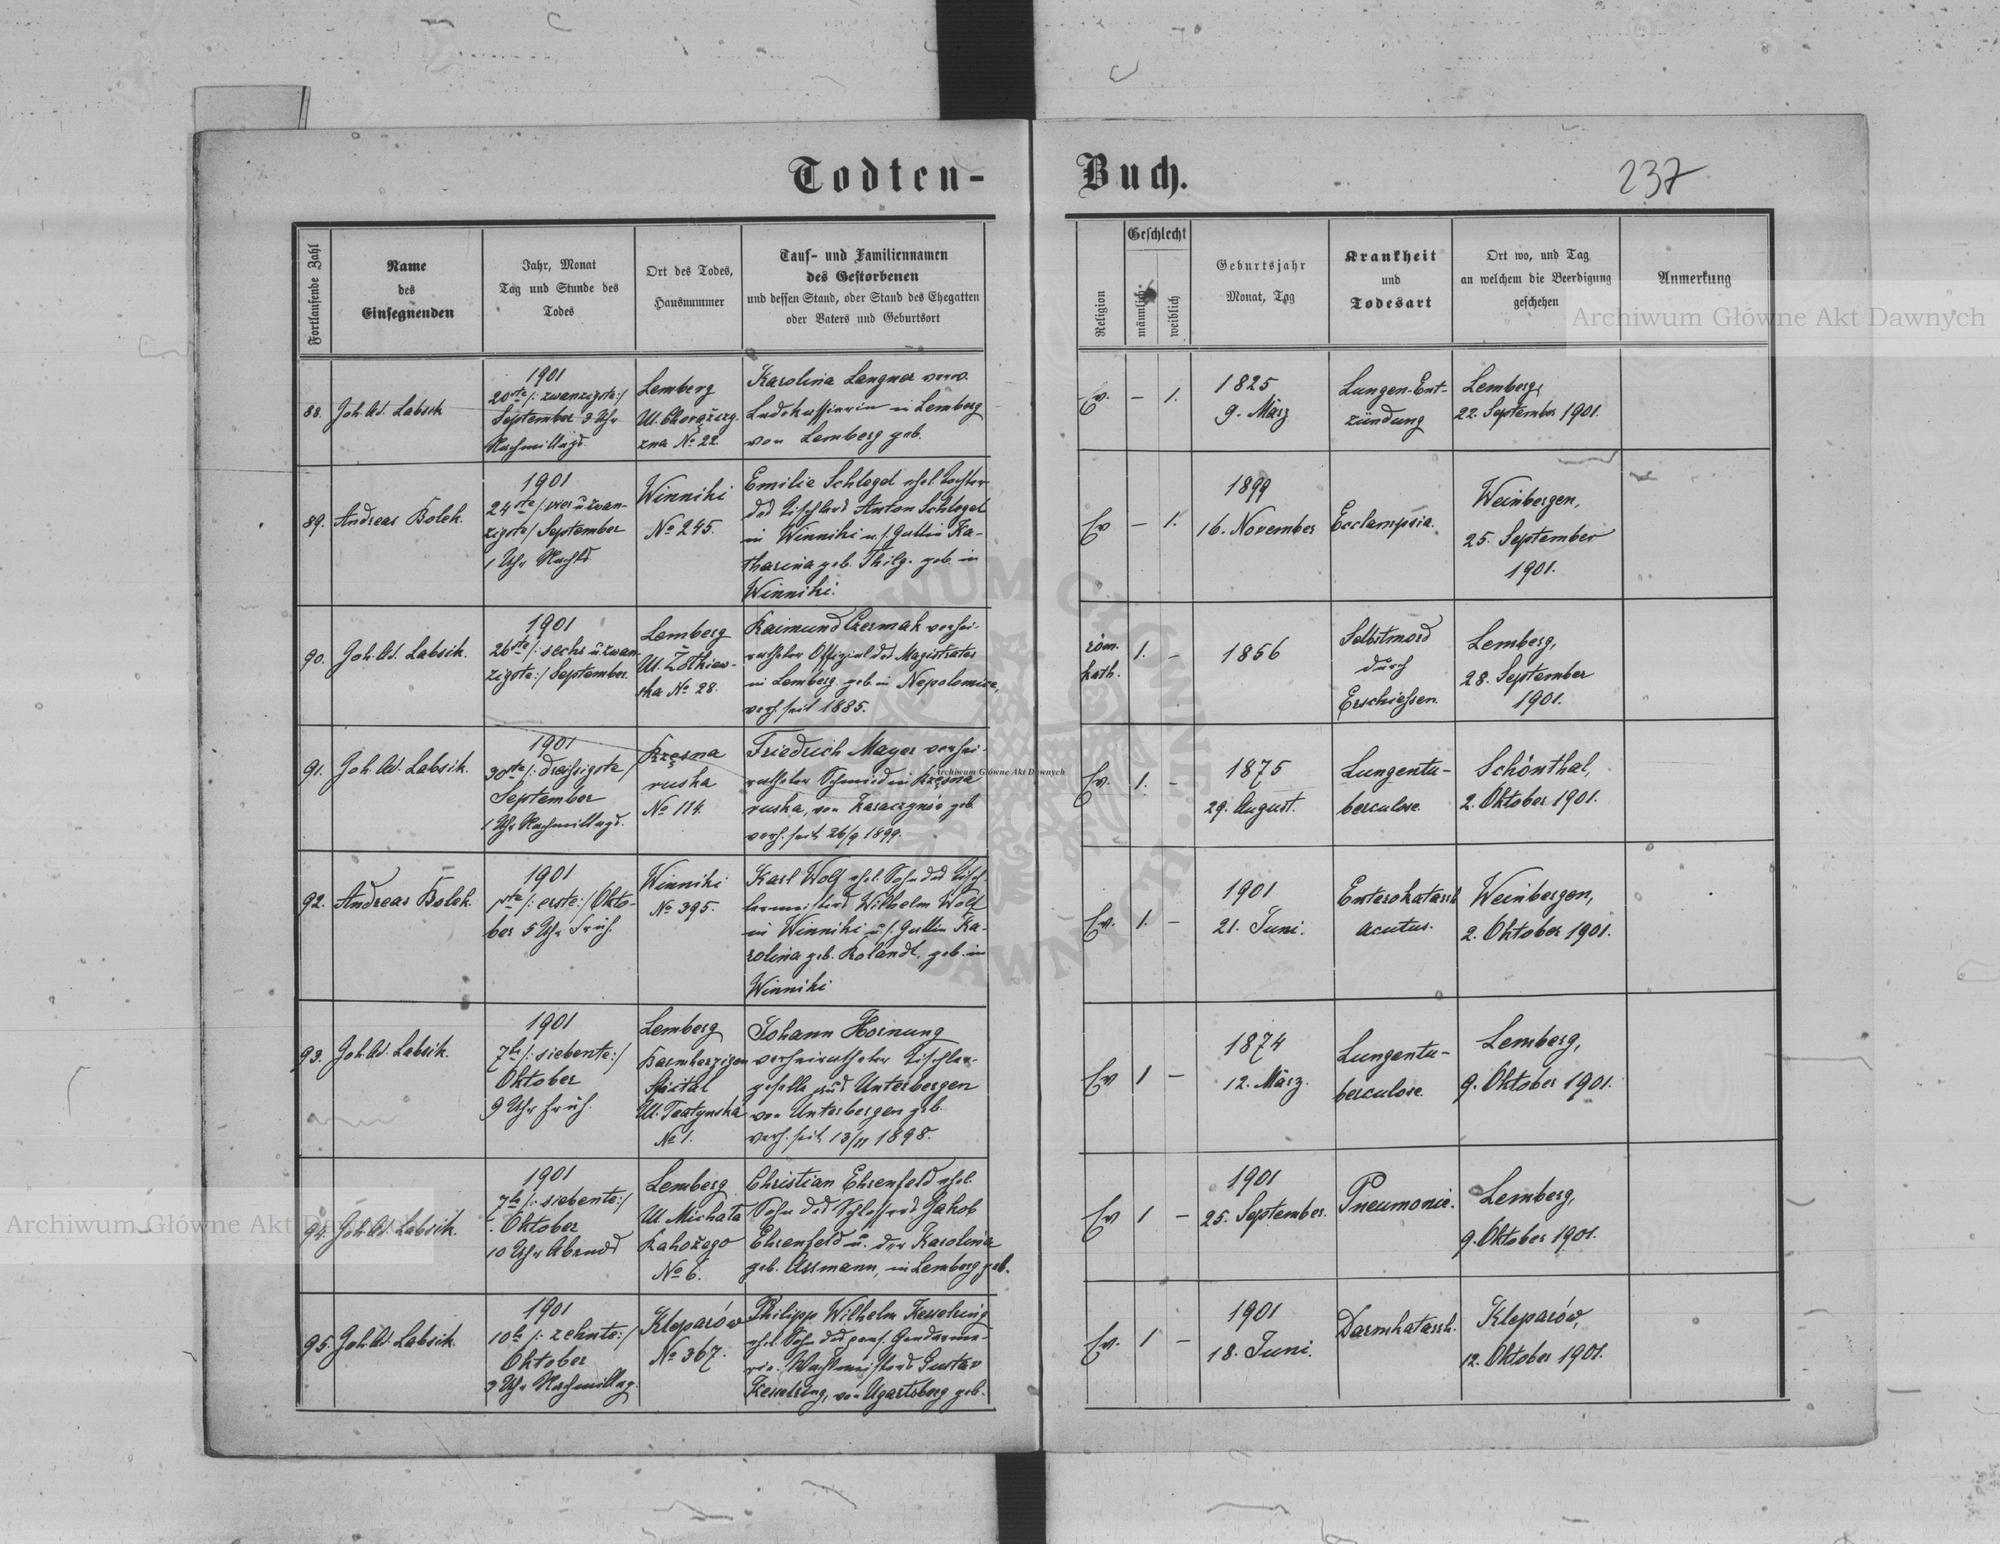 Todten-
Buch.
237
Fortlaufende Zahl
Name
des
Einsegnenden
Jahr, Monat
Tag und Stunde des
Todes
Ort des Todes,
Hausnummer
Tauf- und Familiennamen
des Gestorbenen
und dessen Stand, oder Stand des Ehegatten
oder Vaters und Geburtsort
Religion
Geschlecht
männlich
weiblich
Geburtsjahr
Monat, Tag
Krankheit
und
Todesart
Ort wo, und Tag
an welchem die Beerdigung
geschehen
Anmerkung
88.
Joh. Ad. Labsik
1901
20ste /: zwanzigste :/
September 3 Uhr
Nachmittags.
Lemberg
Ul. Chorążcz-
zna No 22.
Karolina Langner verw.
in Lemberg
von Lemberg geb.
Ev.
–
1.
1825
9. März
Lungen-Ent-
zündung
Lemberg,
22. September 1901.
89.
Andreas Bolek.
1901
24ste /: vier u. zwan-
zigste / September
1 Uhr Nachts.
Winniki
No 245.
Emilie Schlegel ehel. Tochter
des Tischlers Anton Schlegel
in Winniki u. s. Gattin Ka-
tharina geb. Thilg. geb. in
Winniki.
Ev
–
1.
1899
16. November
Ecclampsia.
Weinbergen,
25. September
1901.
90.
Joh. Ad. Labsik.
1901
26ste /: sechs u. zwan-
zigste :/ September.
Lemberg
Ul. Żołkiew-
ska No 28.
Raimund Czermak verhei-
ratheter Offizial des Magistrates
in Lemberg geb. in Nepolomice,
verh. seit 1885.
röm.
kath.
1.
–
1856
Selbstmord
durch
Erschießen.
Lemberg,
28. September
1901.
91.
Joh. Ad. Labsik.
1901
30ste /: dreißigste /
September
1 Uhr Nachmittags.
Kręsna
ruska
No 114.
Friedrich Mayer verhei-
ratheter Schmied in Kręsna
ruska, von geb.
verh. seit 26/9 1899.
Ev.
1.
–
1875
29. August.
Lungentu-
berculose.
Schönthal,
2. Oktober 1901.
92.
Andreas Bolek.
1901
1ste /: erste :/ Okto-
ber 5 Uhr Früh.
Winniki
No 395.
Karl Wolf ehel. Sohn des Tisch-
lermeisters Wilhelm Wolf
in Winniki u. s. Gattin Ka-
rolina geb. Kolandt, geb. in
Winniki
Ev.
1.
–
1901
21. Juni.
Enterokatarrh
acutus.
Weinbergen,
2. Oktober 1901.
93.
Joh. Ad. Labsik.
1901
7te /: siebente :/
Oktober
9 Uhr Früh.
Lemberg
Barmherzigen
Spital
Ul. Teatynska
No 1.
Johann Hornung
verheiratheter Tischler-
geselle aus Unterbergen
von Unterbergen geb.
verh. seit 13/11 1898.
Ev
1
–
1874
12. März.
Lungentu-
berculose.
Lemberg,
9. Oktober 1901.
94.
Joh. Ad. Labsik.
1901
7te /: siebente :/
Oktober
10 Uhr Abends
Lemberg
Ul. Michała
No 6.
Christian Ehrenfeld ehel.
Sohn des Schlossers Jakob
Ehrenfeld u. der Karolina
geb. Assmann, in Lemberg geb.
Ev
1
–
1901
25. September.
Pneumonie.
Lemberg,
9. Oktober 1901.
95.
Joh. Ad. Labsik.
1901
10te /: zehnte :/
Oktober
3 Uhr Nachmittag.
Kleparów
No 367.
Philipp Wilhelm Kesselring
ehel. Sohn des pens. Gendarme-
rie-Wachtmeisters Gustav
Kesselring, von Ugartsberg geb.
Ev.
1
–
1901
18. Juni.
Darmkatarrh.
Kleparów,
12. Oktober 1901.
Archiwum Główne Akt Dawnych
Archiwum Główne Akt Dawnych
Archiwum Główne Akt Dawnych